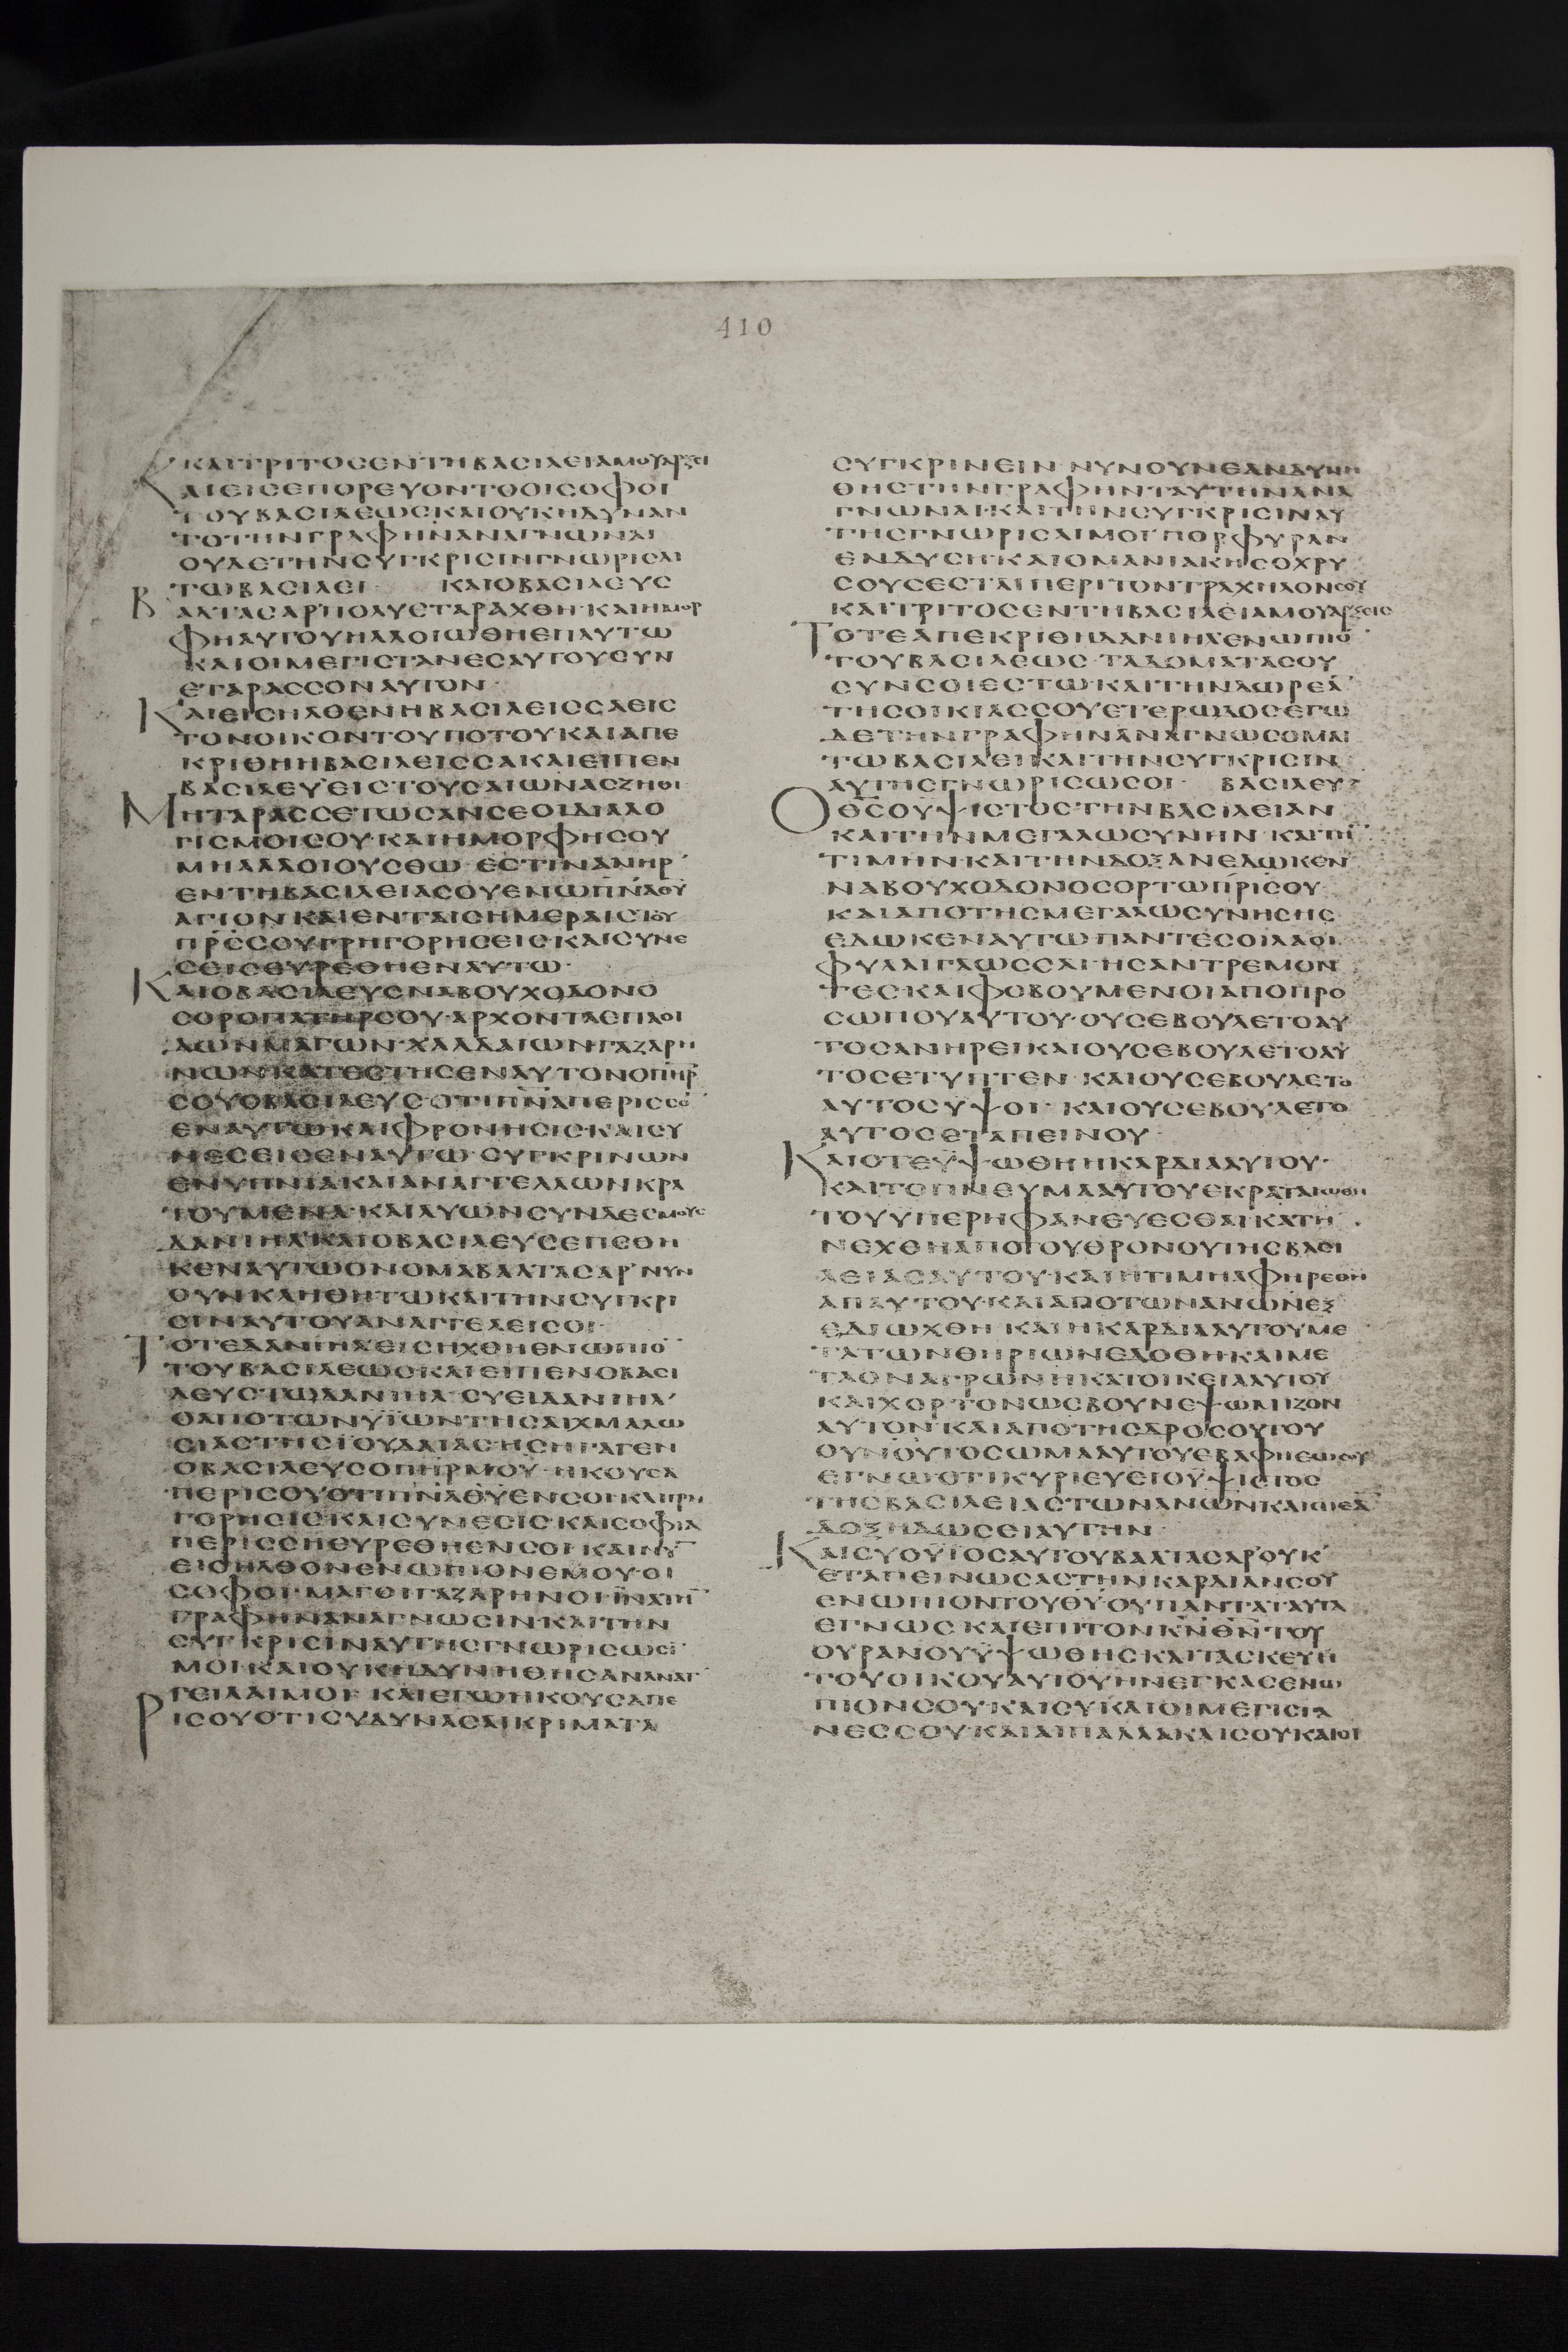 410
ΚΑΙΤΡΙΤΟСЄΝΤΗΒΑСΙΛЄΙΑΜΟΥΑΡΞЄΙ
ΚΑΙЄΙСЄΠΟΡЄΥΟΝΤΟΟΙСΟΦΟΙ
ΤΟΥΒΑСΙΛЄωСΚΑΙΟΥΚΗΔΥΝΑΝ
ΤΟΤΗΝΓΡΑΦΗΝΑΝΑΓΝωΝΑΙ
ΟΥΔЄΤΗΝСΥΓΚΡΙСΙΝΓΝωΡΙСΑΙ
ΤωΒΑСΙΛЄΙ· ΚΑΙΟΒΑСΙΛЄΥС
ΒΑΛΤΑСΑΡ'ΠΟΛΥЄΤΑΡΑΧΘΗ·ΚΑΙΗΜΟΡ
ΦΗΑΥΤΟΥΗΛΛΟΙωΘΗЄΠΑΥΤω
ΚΑΙΟΙΜЄΓΙСΤΑΝЄСΑΥΤΟΥСΥΝ
ЄΤΑΡΑССΟΝΑΥΤΟΝ·
ΚΑΙЄΙСΗΛΘЄΝΗΒΑСΙΛЄΙССΑЄΙС
ΤΟΝΟΙΚΟΝΤΟΥΠΟΤΟΥΚΑΙΑΠЄ
ΚΡΙΘΗΗΒΑСΙΛЄΙССΑΚΑΙЄΙΠЄΝ
ΒΑСΙΛЄΥЄΙСΤΟΥСΑΙωΝΑСΖΗΘΙ
ΜΗΤΑΡΑССЄΤωСΑΝСЄΟΙΔΙΑΛΟ
ΓΙСΜΟΙСΟΥ·ΚΑΙΗΜΟΡΦΗСΟΥ
ΜΗΑΛΛΟΙΟΥСΘω·ЄСΤΙΝΑΝΗΡ'
ЄΝΤΗΒΑСΙΛЄΙΑСΟΥЄΝωΠΝΑΘΥ
ΑΓΙΟΝΚΑΙЄΝΤΑΙСΗΜЄΡΑΙСΤΟΥ
ΠΡССΟΥΓΡΗΓΟΡΗСЄΙСΚΑΙСΥΝЄ
СЄΙСЄΥΡЄΘΗЄΝΑΥΤω·
ΚΑΙΟΒΑСΙΛЄΥСΝΑΒΟΥΧΟΔΟΝΟ
СΟΡΟΠΑΤΗΡСΟΥ·ΑΡΧΟΝΤΑЄΠΑΟΙ
ΔωΝΜΑΓωΝ·ΧΑΛΔΑΙωΝΓΑΖΑΡΗ
ΝωΝΚΑΤЄСΤΗСЄΝΑΥΤΟΝΟΠΗΡ
СΟΥΟΒΑСΙΛЄΥСΟΤΙΠΝΑΠЄΡΙССΟ
ЄΝΑΥΤωΚΑΙΦΡΟΝΗСΙСΚΑΙСΥ
ΝЄСЄΙСЄΝΑΥΤω·СΥΓΚΡΙΝωΝ
ЄΝΥΠΝΙΑΚΑΙΑΝΑΓΓЄΛΛωΝΚΡΑ
ΤΟΥΜЄΝΑ·ΚΑΙΛΥωΝСΥΝΔЄСΜΟΥС
ΔΑΝΙΗΛ'ΚΑΙΟΒΑСΙΛЄΥСЄΠЄΘΗ
ΚЄΝΑΥΤωΟΝΟΜΑΒΑΛΤΑСΑΡ'ΝΥΝ
ΟΥΝΚΛΗΘΗΤωΚΑΙΤΗΝСΥΓΚΡΙ
СΙΝΑΥΤΟΥΑΝΑΓΓЄΛЄΙСΟΙ·
ΤΟΤЄΔΑΝΙΗΛЄΙСΗΧΘΗЄΝωΠΙΟ
ΤΟΥΒΑСΙΛЄωСΚΑΙЄΙΠЄΝΟΒΑСΙ
ΛЄΥСΤωΔΑΝΙΗΛ·СΥЄΙΔΑΝΙΗΛ'
ΘΑΠΟΤωΝΥΪωΝΤΗСΑΙΧΜΑΛω
СΙΑСΤΗСΙΟΥΔΑΙΑСΗСΗΓΑΓЄΝ
ΟΒΑСΙΛЄΥСΟΠΗΡΜΟΥ·ΗΚΟΥСΑ
ΠЄΡΙСΟΥΟΤΙΠΝΑΘΥЄΝСΟΙΚΑΙΓΡΗ
ΓΟΡΗСΙСΚΑΙСΥΝЄСΙСΚΑΙСΟΦΙΑ
ΠЄΡΙССΗЄΥΡЄΘΗЄΝСΟΙ·ΚΑΙΝΥ
ЄΙСΗΛΘΟΝЄΝωΠΙΟΝЄΜΟΥ·ΟΙ
СΟΦΟΙ·ΜΑΓΟΙΓΑΖΑΡΗΝΟΙΪΝΑΤΗ
ΓΡΑΦΗΝΑΝΑΓΝωСΙΝΚΑΙΤΗΝ
СΥΓΚΡΙСΙΝΑΥΤΗСΓΝωΡΙСωСΙ
ΜΟΙ·ΚΑΙΟΥΚΗΔΥΝΗΘΗСΑΝΑΝΑΓ
ΓЄΙΛΑΙΜΟΙ· ΚΑΙЄΓωΗΚΟΥСΑΠЄ
ΡΙСΟΥΟΤΙСΥΔΥΝΑСΑΙΚΡΙΜΑΤΑ
СΥΓΚΡΙΝЄΙΝ·ΝΥΝΟΥΝЄΑΝΔΥΝΗ
ΘΗСΤΗΝΓΡΑΦΗΝΤΑΥΤΗΝΑΝΑ
ΓΝωΝΑΙ·ΚΑΙΤΗΝСΥΓΚΡΙСΙΝΑΥ
ΤΗСΓΝωΡΙСΑΙΜΟΙ·ΠΟΡΦΥΡΑΝ
ЄΝΔΥСΗ·ΚΑΙΟΜΑΝΙΑΚΗСΟΧΡΥ
СΟΥСЄСΤΑΙΠЄΡΙΤΟΝΤΡΑΧΗΛΟΝСΟΥ
ΚΑΙΤΡΙΤΟСЄΝΤΗΒΑСΙΛЄΙΑΜΟΥΑΡΞЄΙС
ΤΟΤЄΑΠЄΚΡΙΘΗΔΑΝΙΗΛ'ЄΝωΠΙΟ
ΤΟΥΒΑСΙΛЄωС·ΤΑΔΟΜΑΤΑСΟΥ
СΥΝСΟΙЄСΤω·ΚΑΙΤΗΝΔωΡЄΑ
ΤΗСΟΙΚΙΑССΟΥЄΤЄΡωΔΟСЄΓω
ΔЄΤΗΝΓΡΑΦΗΝΑΝΑΓΝωСΟΜΑΙ
ΤωΒΑСΙΛЄΙΚΑΙΤΗΝСΥΓΚΡΙСΙΝ
ΑΥΤΗСΓΝωΡΙСωСΟΙ· ΒΑСΙΛЄΥ
ΟΘСΟΥΨΙСΤΟСΤΗΝΒΑСΙΛЄΙΑΝ
ΚΑΙΤΗΝΜЄΓΑΛωСΥΝΗΝ·ΚΑΙΤΗ
ΤΙΜΗΝ·ΚΑΙΤΗΝΔΟΞΑΝЄΔωΚЄΝ
ΝΑΒΟΥΧΟΔΟΝΟСΟΡΤωΠΡΙСΟΥ·
ΚΑΙΑΠΟΤΗСΜЄΓΑΛωСΥΝΗСΗС
ЄΔωΚЄΝΑΥΤωΠΑΝΤЄСΟΙΛΑΟΙ
ΦΥΛΑΙΓΛωССΑΙΗСΑΝΤΡЄΜΟΝ
ΤЄСΚΑΙΦΟΒΟΥΜЄΝΟΙΑΠΟΠΡΟ
СωΠΟΥΑΥΤΟΥ·ΟΥСЄΒΟΥΛЄΤΟΑΥ
ΤΟСΑΝΗΡЄΙΚΑΙΟΥСЄΒΟΥΛЄΤΟΑΥ
ΤΟСЄΤΥΠΤЄΝ·ΚΑΙΟΥСЄΒΟΥΛЄΤΟ
ΑΥΤΟСΥΨΟΙ· ΚΑΙΟΥСЄΒΟΥΛЄΤΟ
ΑΥΤΟСЄΤΑΠЄΙΝΟΥ·
ΚΑΙΟΤЄΥΨωΘΗΗΚΑΡΔΙΑΑΥΤΟΥ·
ΚΑΙΤΟΠΝЄΥΜΑΑΥΤΟΥЄΚΡΑΤΑΙωΘΗ
ΤΟΥΥΠЄΡΗΦΑΝЄΥЄСΘΑΙ·ΚΑΤΗ
ΝЄΧΘΗΑΠΟΤΟΥΘΡΟΝΟΥΤΗСΒΑСΙ
ΛЄΙΑСΑΥΤΟΥ·ΚΑΙΗΤΙΜΗΑΦΗΡЄΘΗ
ΑΠΑΥΤΟΥ·ΚΑΙΑΠΟΤωΝΑΝωΝЄΞ
ЄΔΙωΧΘΗ·ΚΑΙΗΚΑΡΔΙΑΑΥΤΟΥΜЄ
ΤΑΤωΝΘΗΡΙωΝЄΔΟΘΗ·ΚΑΙΜЄ
ΤΑΟΝΑΓΡωΝΗΚΑΤΟΙΚЄΙΑΑΥΤΟΥ
ΚΑΙΧΟΡΤΟΝωСΒΟΥΝЄΨωΜΙΖΟΝ
ΑΥΤΟΝ·ΚΑΙΑΠΟΤΗСΔΡΟСΟΥΤΟΥ
ΟΥΝΟΥΤΟСωΜΑΑΥΤΟΥЄΒΑΦΗЄωСΟΥ
ЄΓΝωΟΤΙΚΥΡΙЄΥЄΙΟΥΨΙСΤΟС
ΤΗСΒΑСΙΛЄΙΑСΤωΝΑΝωΝΚΑΙωЄΑ
ΔΟΞΗΔωСЄΙΑΥΤΗΝ·
ΚΑΙСΥΟΥΙΟСΑΥΤΟΥΒΑΛΤΑСΑΡ'ΟΥΚ'
ЄΤΑΠЄΙΝωСΑСΤΗΝΚΑΡΔΙΑΝСΟΥ
ЄΝωΠΙΟΝΤΟΥΘΥ·ΟΥΠΑΝΤΑΤΑΥΤΑ
ЄΓΝωС·ΚΑΙЄΠΙΤΟΝΚΝΘΝΤΟΥ
ΟΥΡΑΝΟΥΥΨωΘΗСΚΑΙΤΑСΚЄΥΗ
ΤΟΥΟΙΚΟΥΑΥΤΟΥΗΝЄΓΚΑСЄΝω
ΠΙΟΝСΟΥ·ΚΑΙСΥΚΑΙΟΙΜЄΓΙСΤΑ
ΝЄССΟΥ·ΚΑΙΑΙΠΑΛΛΑΚΑΙСΟΥΚΑΙΟΙ